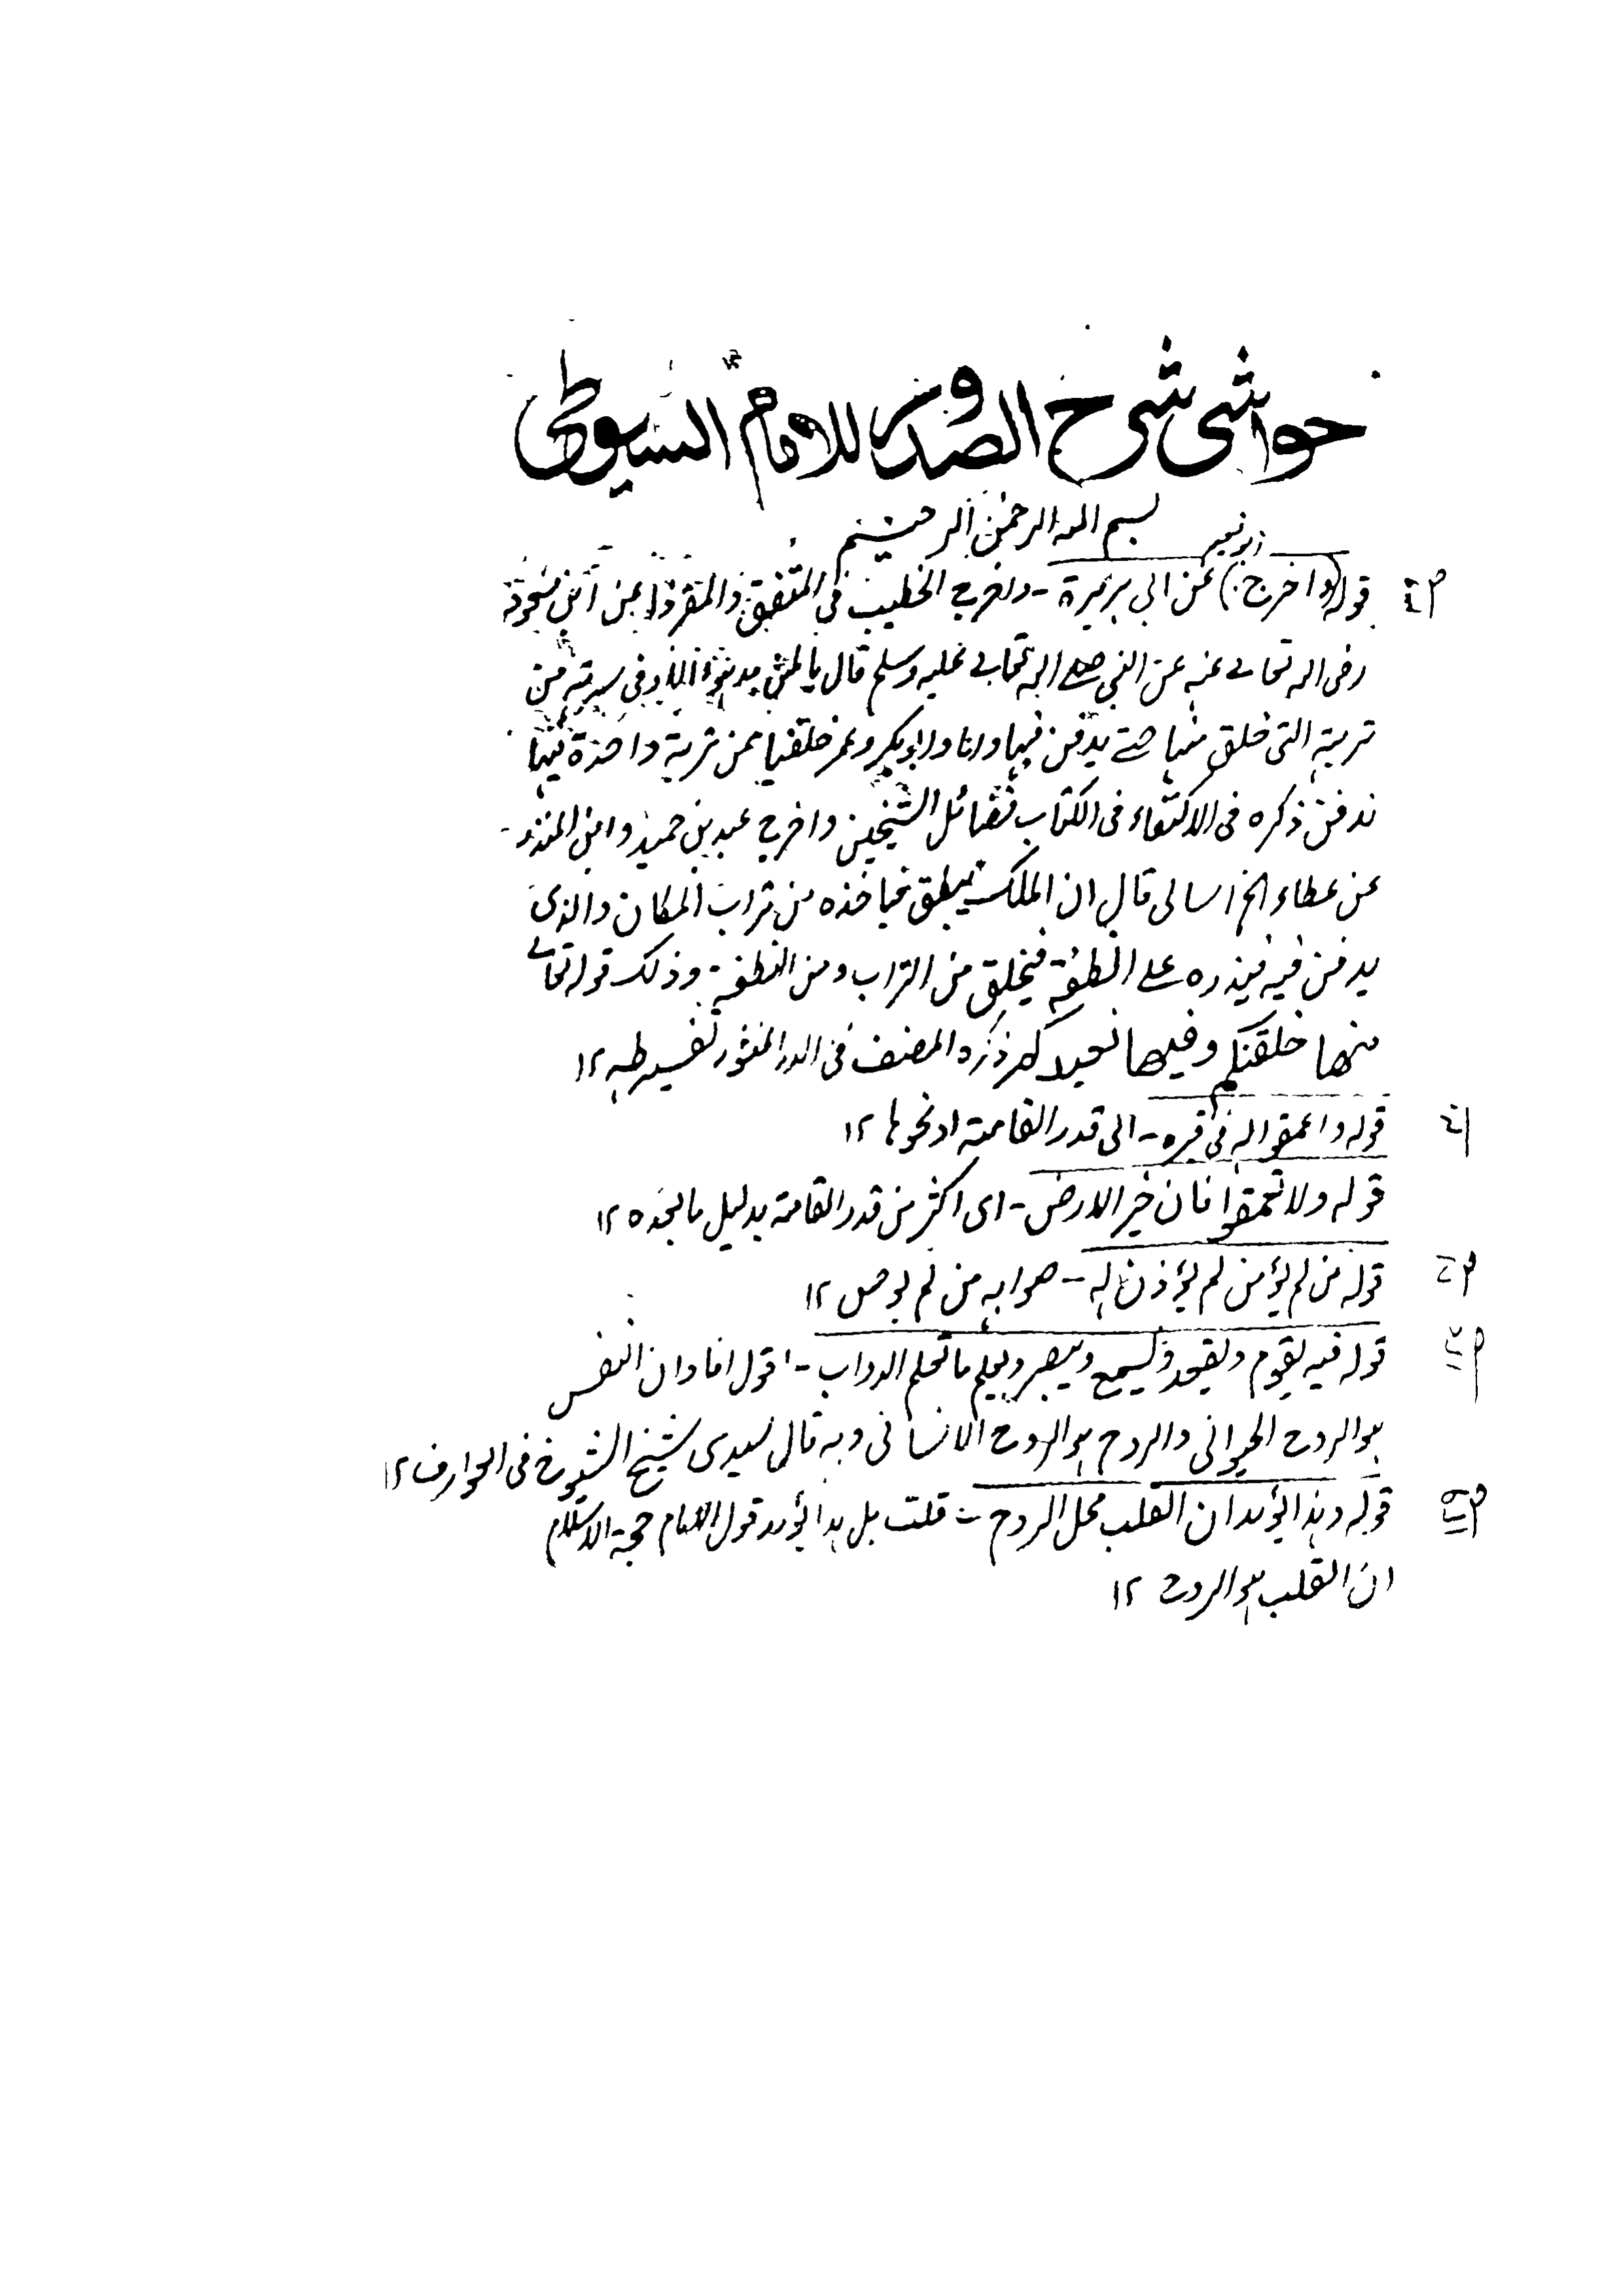 حواشی شرح الصدور للامام السیوطی
بسم الله الرحمن الرحیم
ابو نعیم
قوله (واخرج) عن ابی هریرة - واخرج الخطیب فی المتفق والمفترق عن ابن مسعود
رضی الله تعالی عنه عن النبی صلی الله تعالی علیه وسلم قال ما من مولود الا وفی سرته من
تربته التی خلق منها حتی یدفن فیها وانا وابوبکر وعمر خلقنا من تربة واحدة فیها
ندفن ذکره فی الاکتفاء فی الکتاب فضائل الشیخین واخرج عبد بن حمید وابن المنذر
عن عطاء الخراسانی قال ان الملک ینطلق فیاخذه من تراب المکان والذی
یدفن فیه فیذره علی النطفة فیخلق من التراب ومن النطفة - وذلک قوله تعالی
منها خلقنکم وفیها نعیدکم ذکره المصنف فی الدر المنثور تفسیر طه ۱۲
قوله واعمقوا له فی قبره - الی قدر القامة او نحوها ۱۲
قوله ولا تعمقوا فان خیر الارض - ای اکثر من قدر القامة بدلیل ما بعده ۱۲
قوله من لم یؤمن لم یؤذن له - صوابه من لم یوص ۱۲
قوله فیه یقوم ویقعد ویسمع ویبصر ویعلم ما تعلم الدواب - اقول افاد ان النفس
هو الروح الحیوانی والروح هو الروح الانسانی وبه قال سیدی شیخ الشیوخ فی العوارف ۱۲
قوله وهذا یؤید ان القلب محل الروح - قلت بل هذا یؤید قول الامام حجة الاسلام
ان القلب هو الروح ۱۲